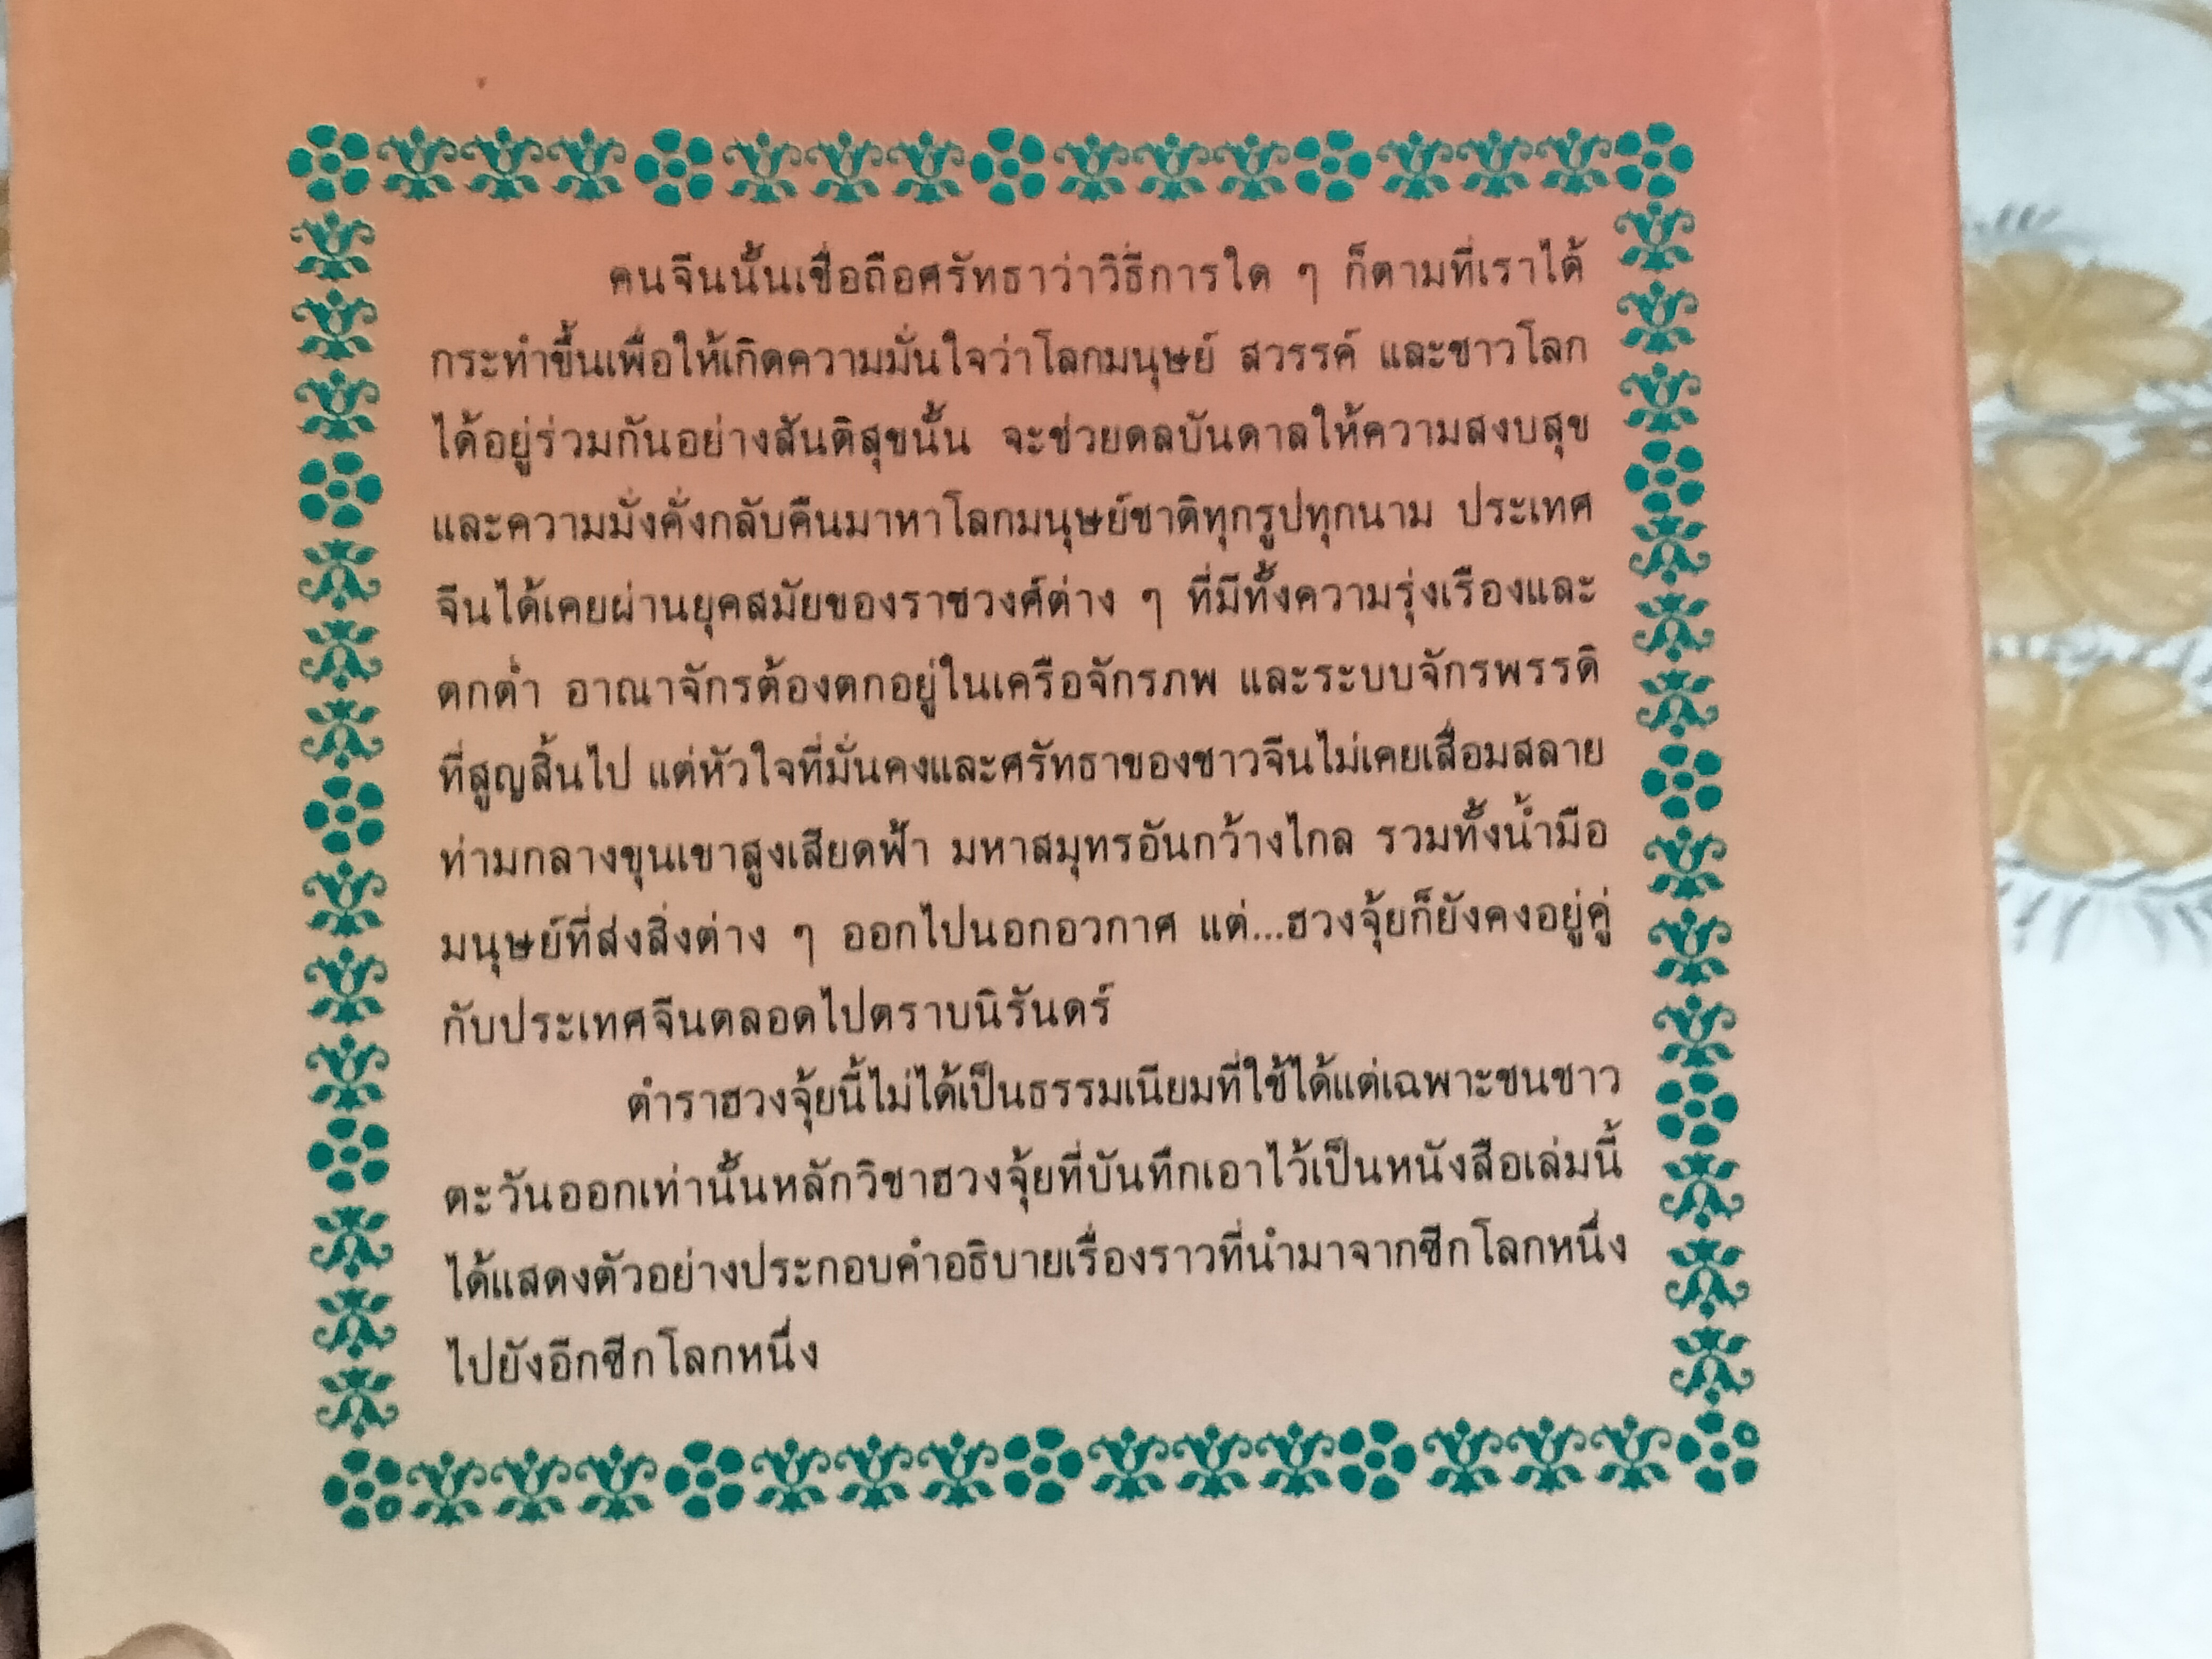 คนจีนนั้นเชื่อถือศรัทธาว่าวิธีการใด ๆ ก็ตามที่เราได้
กระทำขึ้นเพื่อให้เกิดความมั่นใจว่าโลกมนุษย์ สวรรค์ และชาวโลก
ได้อยู่ร่วมกันอย่างสันติสุขนั้น จะช่วยดลบันดาลให้ความสงบสุข
และความมั่งคั่งกลับคืนมาหาโลกมนุษย์ชาติทุกรูปทุกนาม ประเทศ
จีนได้เคยผ่านยุคสมัยของราชวงศ์ต่าง ๆ ที่มีทั้งความรุ่งเรืองและ
ตกต่ำ อาณาจักรต้องตกอยู่ในเครือจักรภพ และระบบจักรพรรดิ
ที่สูญสิ้นไป แต่หัวใจที่มั่นคงและศรัทธาของชาวจีนไม่เคยเสื่อมสลาย
ท่ามกลางขุนเขาสูงเสียดฟ้า มหาสมุทรอันกว้างไกล รวมทั้งน้ำมือ
มนุษย์ที่ส่งสิ่งต่าง ๆ ออกไปนอกอวกาศ แต่...ฮวงจุ้ยก็ยังคงอยู่คู่
กับประเทศจีนตลอดไปตราบนิรันดร์
ตำราฮวงจุ้ยนี้ไม่ได้เป็นธรรมเนียมที่ใช้ได้แต่เฉพาะชนชาว
ตะวันออกเท่านั้นหลักวิชาฮวงจุ้ยที่บันทึกเอาไว้เป็นหนังสือเล่มนี้
ได้แสดงตัวอย่างประกอบคำอธิบายเรื่องราวที่นำมาจากซีกโลกหนึ่ง
ไปยังอีกซีกโลกหนึ่ง